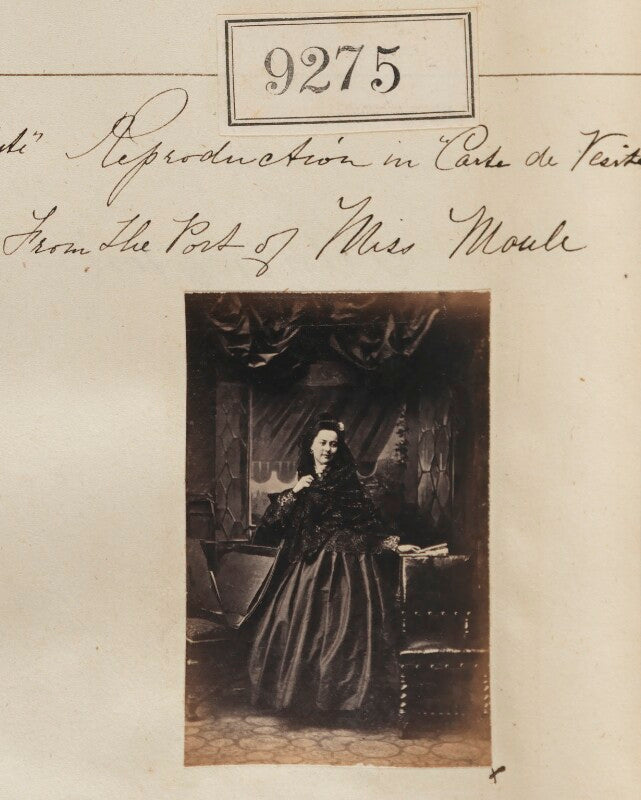 9275
Reproduction in "Carte de Visite
From the Port of Miss Moule